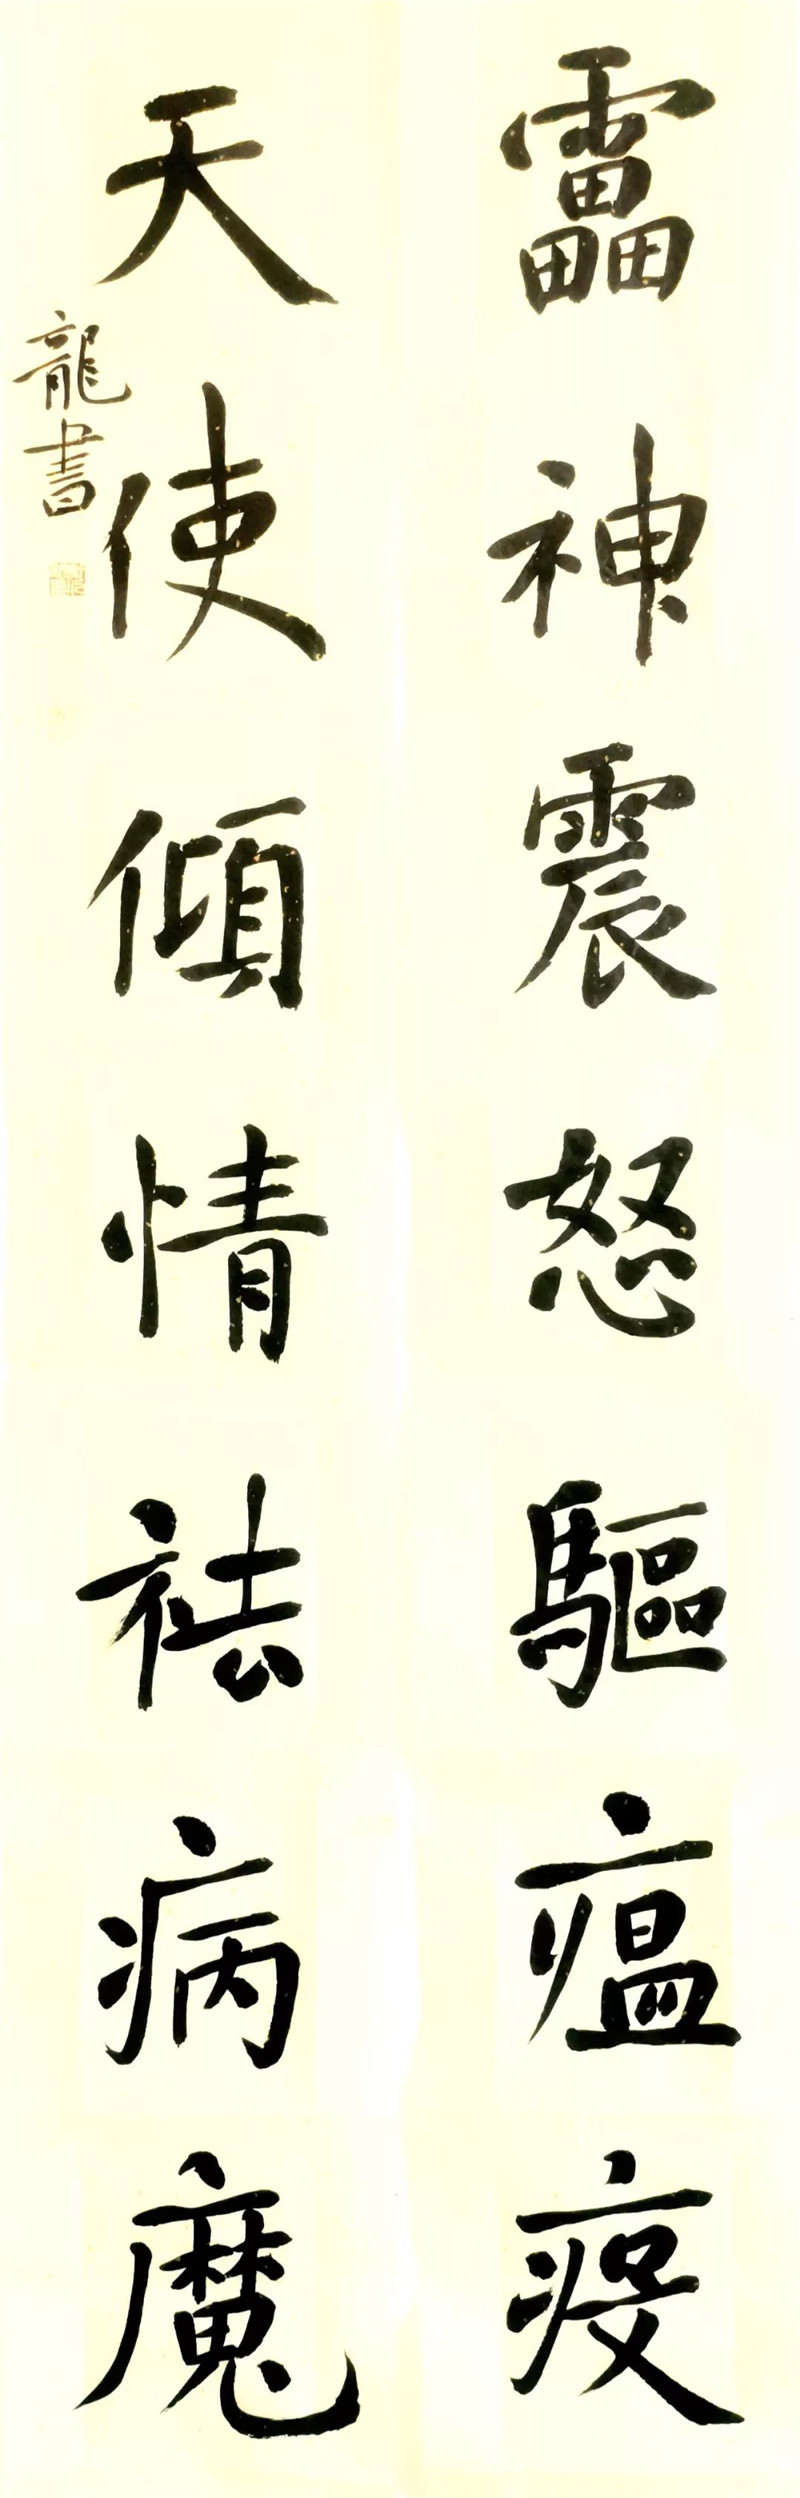 靁神震怒驅瘟疫
天使傾情祛病魔
龍書